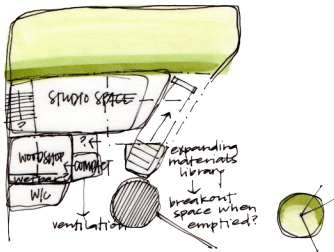 STUDIO SPACE
?
?
WORKSHOP
WET
COMPUTER
W/C
expanding
materials
library
breakout
space when
emptied?
ventilation